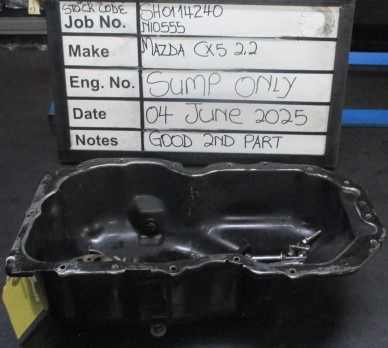 STOCK CODE SH0114240
Job No. N10555
Make MAZDA CX5 2.2
Eng. No. SUMP ONLY
Date 04 JUNE 2025
Notes GOOD 2ND PART